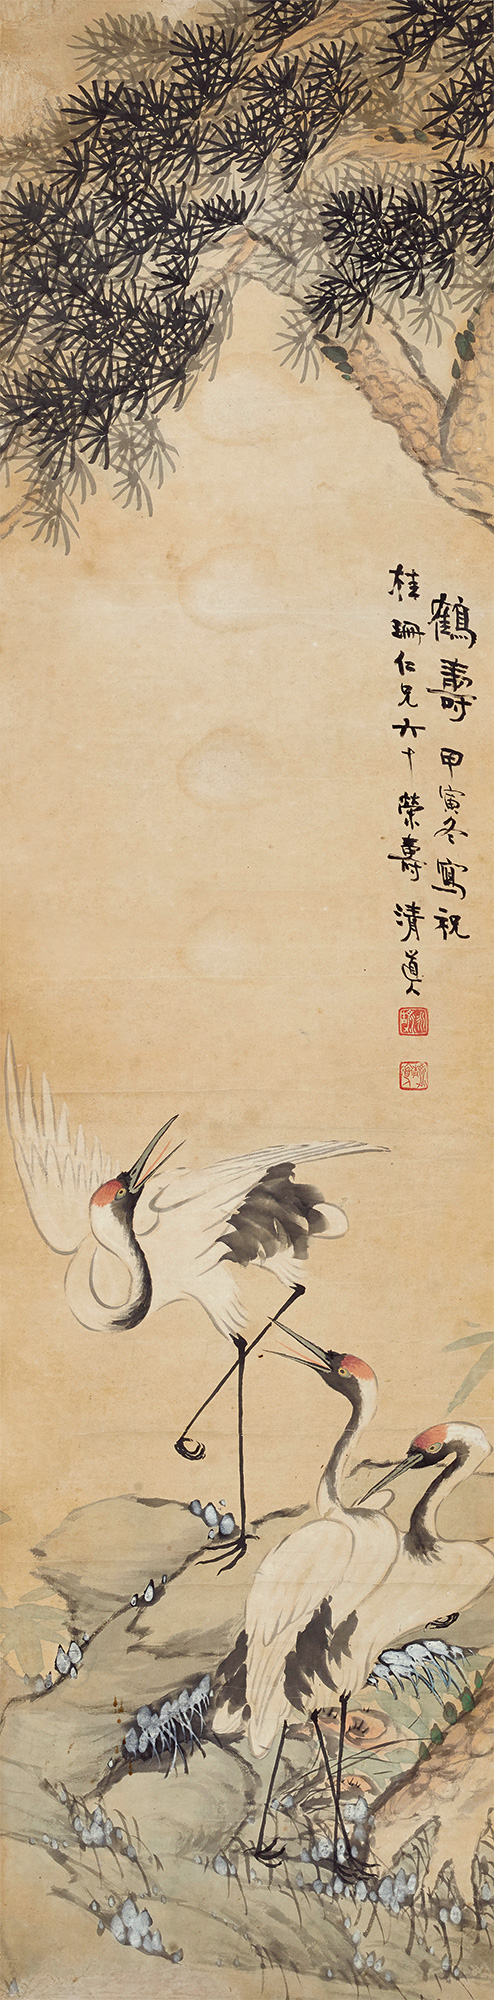 鶴壽 甲寅冬寫祝
桂珊仁兄六十榮壽 清道人